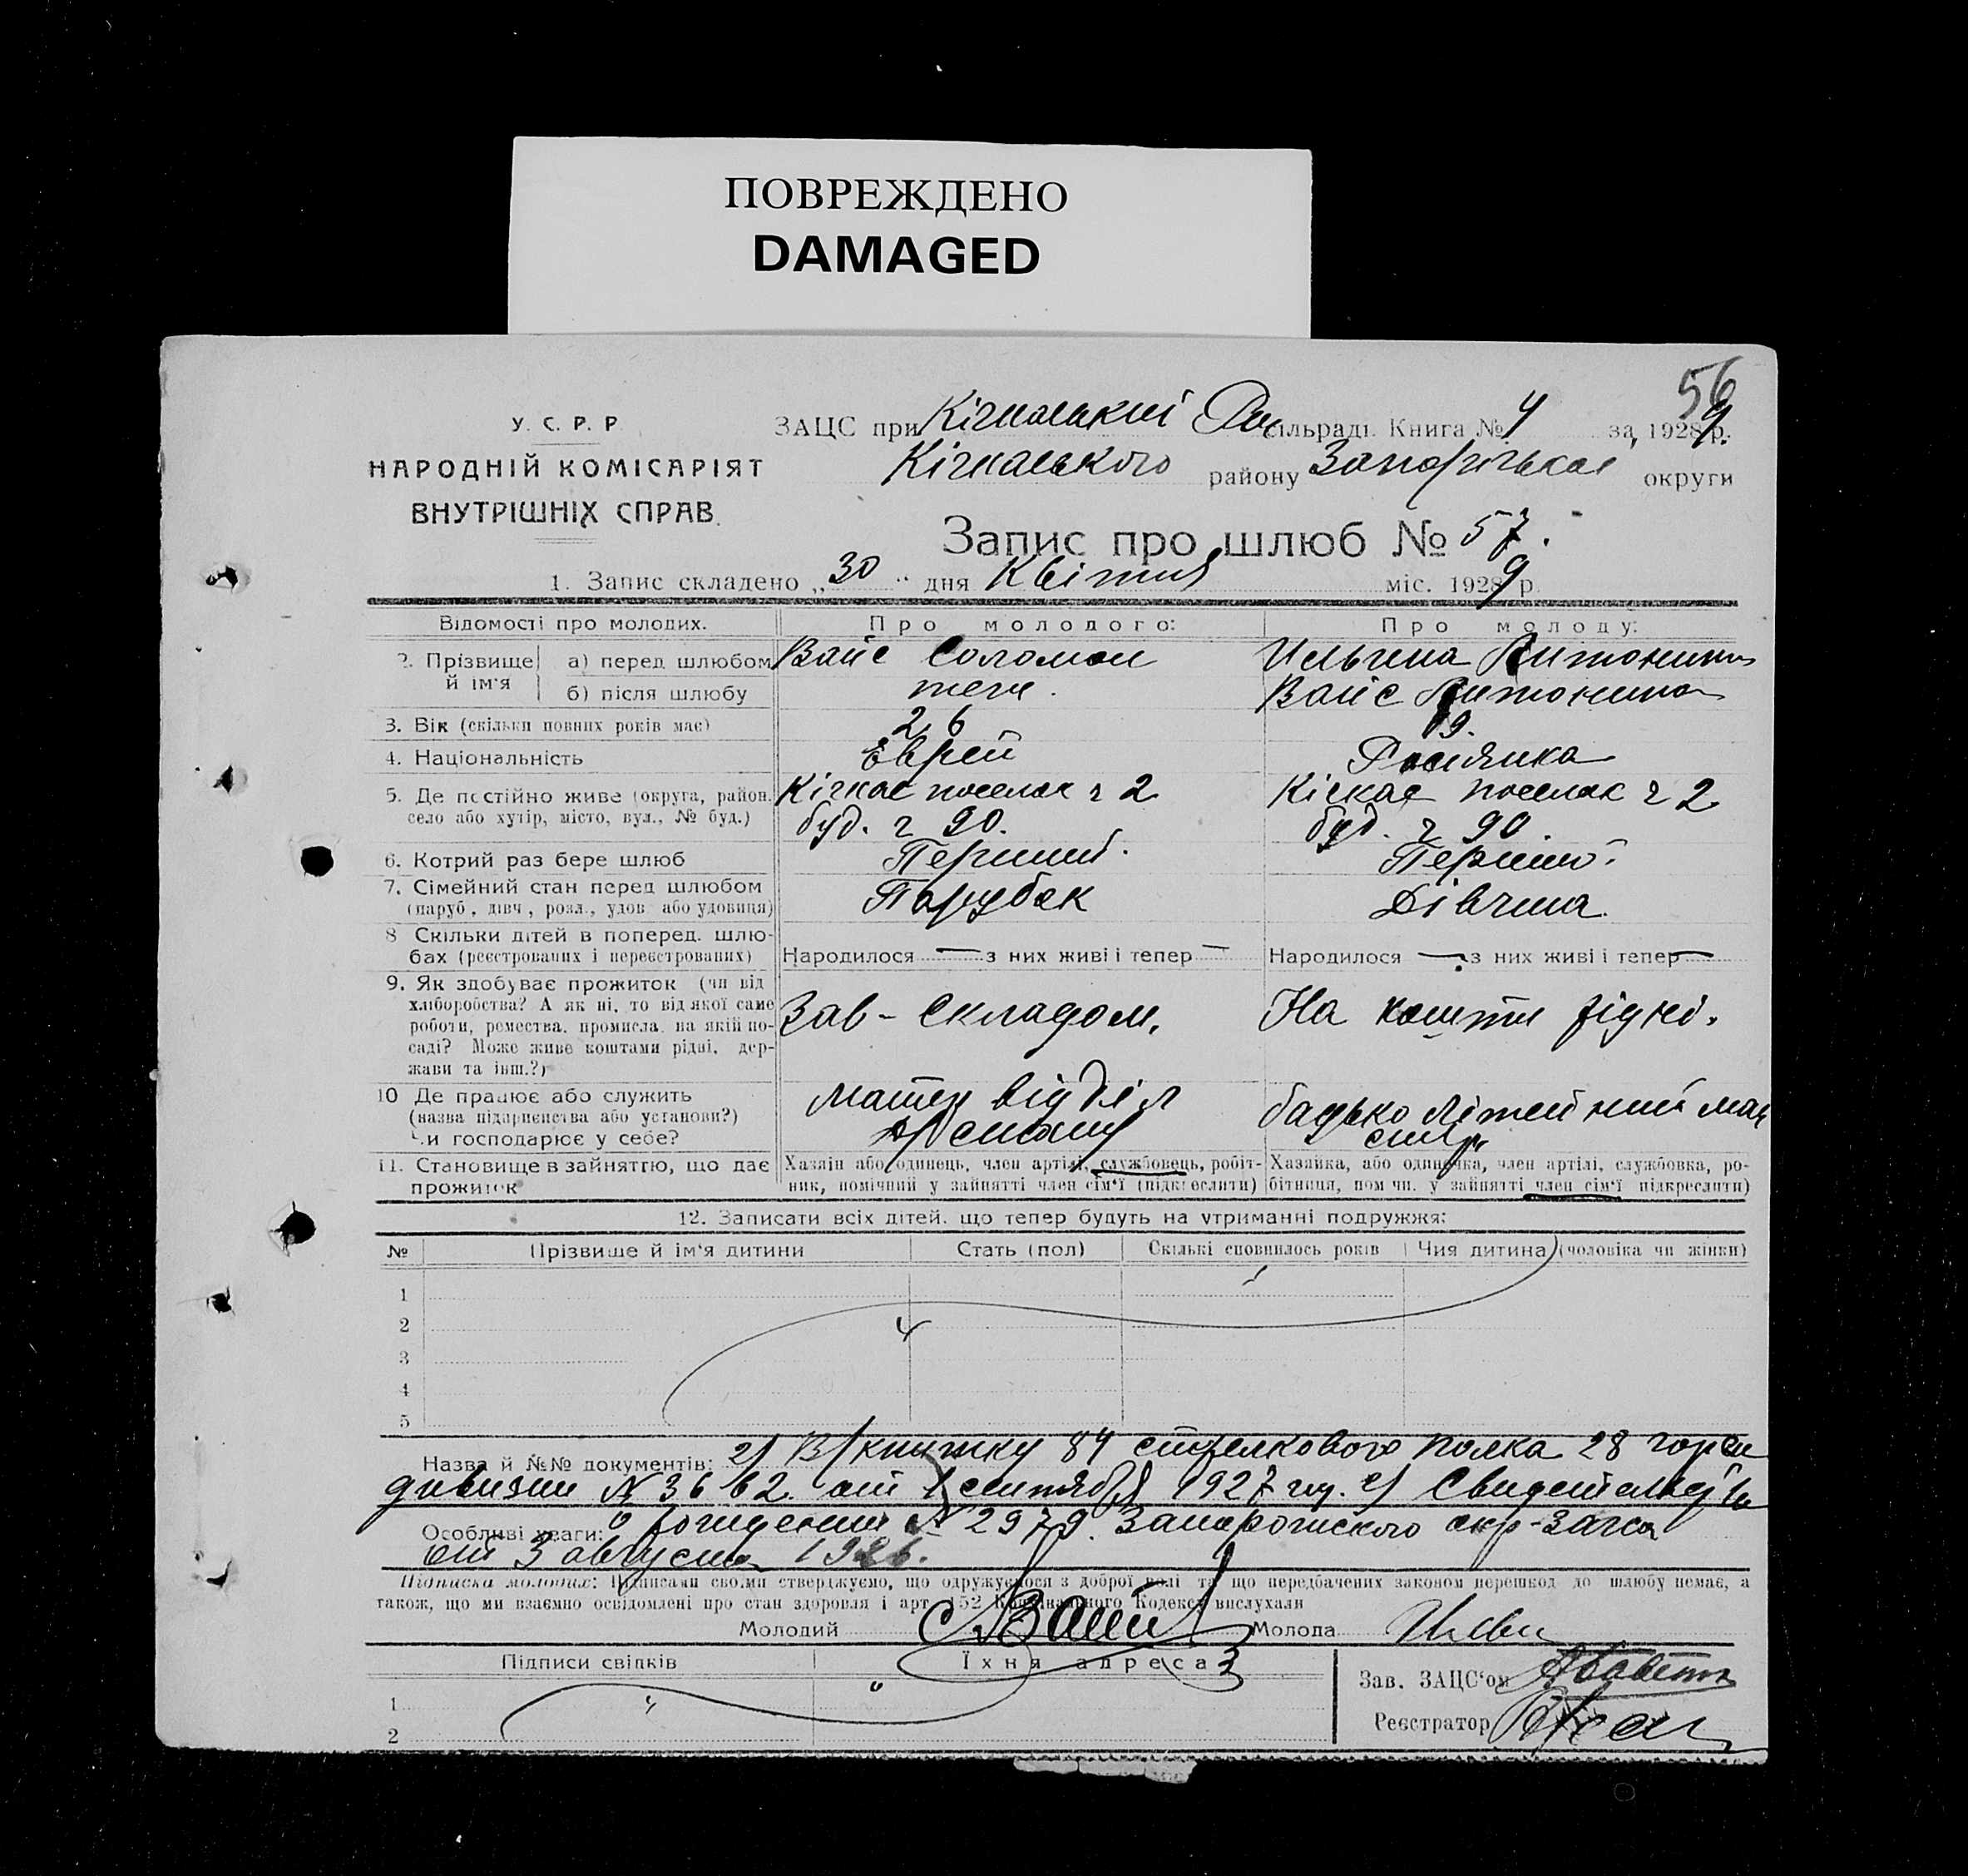 ПОВРЕЖДЕНО
DAMAGED
56
У. С. Р. Р.
НАРОДНІЙ КОМІСАРІЯТ
ВНУТРІШНІХ СПРАВ.
ЗАЦС при Кічкаській сільраді. Книга № 4 за 1929 р.
Кічкаського району Запорізькоі округи
Запис про шлюб № 57.
1. Запис складено „30" дня Квітня міс. 1929 р.
Відомості про молодих.
Про молодого:
Про молоду:
2. Прізвище й ім'я
а) перед шлюбом
Вайс Соломон
Ильина Антонина
б) після шлюбу
теж.
Вайс Антонина
3. Вік (скільки повних років має)
26
19.
4. Національність
Еврей
Росіянка
5. Де постійно живе (округа, район, село або хутір, місто, вул., № буд.)
Кічкас поселок ч 2
буд. ч 90.
Кічкас поселок ч 2
буд. ч 90.
6. Котрий раз бере шлюб
Перший.
Перший.
7. Сімейний стан перед шлюбом
(паруб., дівч., розл., удов. або удовиця)
Парубок
Дівчина.
8 Скільки дітей в поперед. шлю-
бах (реєстрованих і нереєстрованих)
Народилося — з них живі і тепер —
Народилося — з них живі і тепер —
9. Як здобуває прожиток (чи від
хліборобства? А як ні, то від якої саме
роботи, ремества, промисла, на якій по-
саді? Може живе коштами рідні, дер-
жави та інш.?)
Зав - складом.
На кошти рідні.
10 Де працює або служить
(назва підприємства або установи?)
Чи господарює у себе?
матер відділ
батько Літейний май
стр
11. Становище в зайняттю, що дає
прожиток
Хазяїн або одинець, член артілі, службовець, робіт-
ник, помічний у зайнятті член сім'ї (підкреслити)
Хазяйка, або одиначка, член артілі, службовка, ро-
бітниця, помічн. у зайнятті член сім'ї підкреслити)
12. Записати всіх дітей, що тепер будуть на утриманні подружжя:
№
Прізвище й ім'я дитини
Стать (пол)
Скількі сповнилось років
Чия дитина (чоловіка чи жінки)
1
2
3
4
5
Назва й №№ документів: 2) В/книжку 84 стрелкового полка 28 горск
дивизии № 3662. от 1 сентября 1927 год. Свидетельств
Особливі уваги: о рождении № 2979. Запорожского окр-загса
от 3 августа 1926.
Підписка молодих: Підписами своїми стверджуємо, що одружуємося з доброї волі та що передбачених законом перешкод до шлюбу немає, а
також, що ми взаємно освідомлені про стан здоровля і арт. 152 Карального Кодексу вислухали
Молодий СВайс
Молода
Підписи свідків
Їхня адреса
1
2
Зав. ЗАЦС'ом
Реєстратор